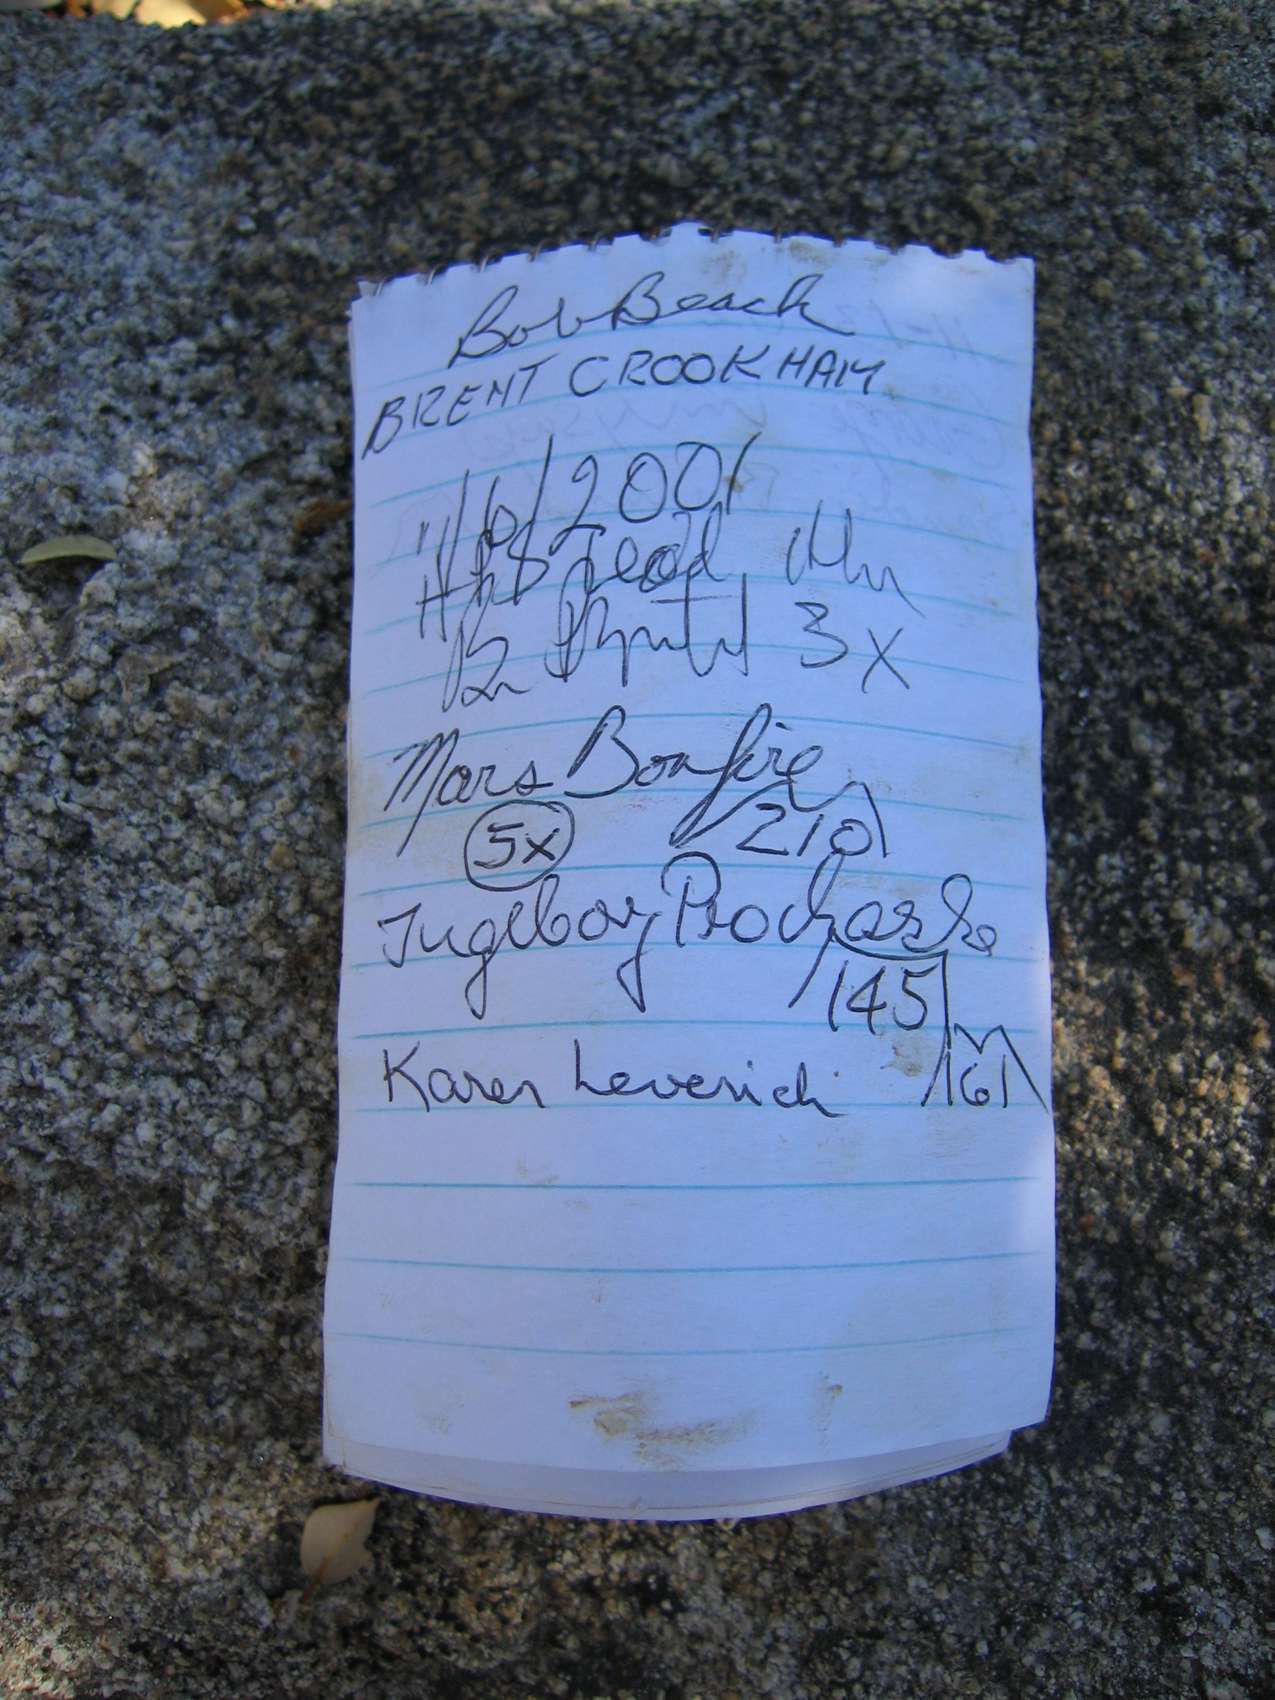 Bob Beach
BRENT CROOKHAM
11/6/2001
HPS Lead
3x
Mars Bonfire
5x 210
Ingeborg Prochazka
145
Karen Leverich 161